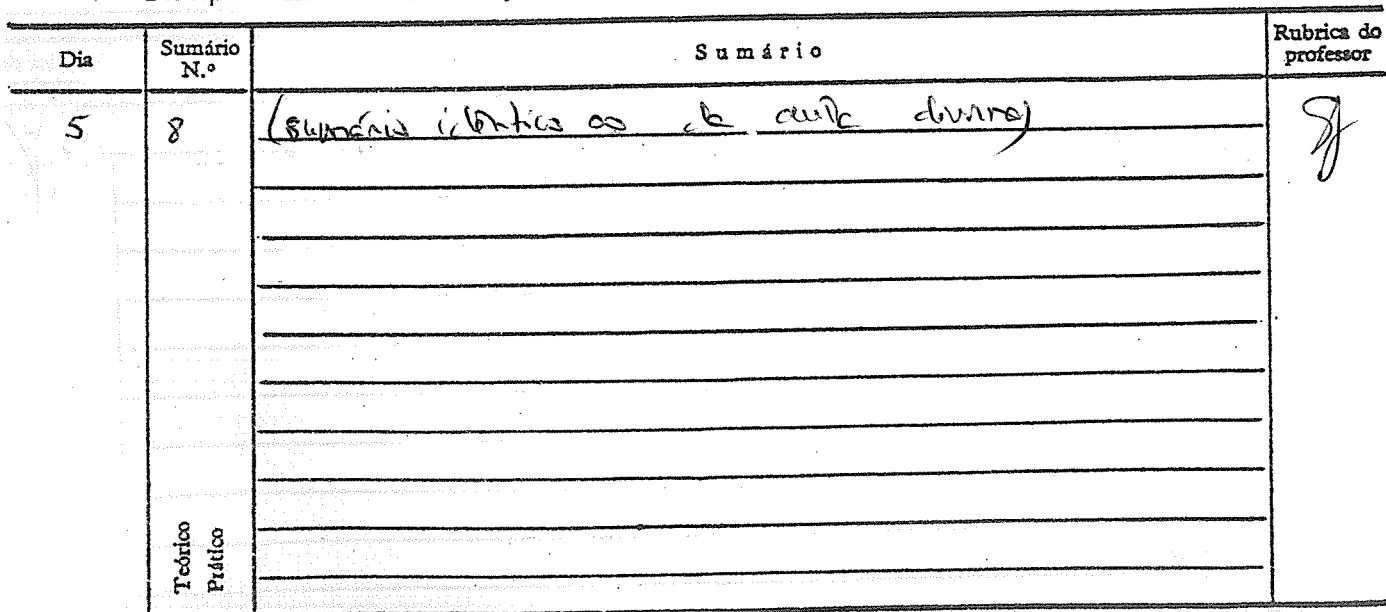 Dia
Sumário N.º
Sumário
Rubrica do professor
5
8
(sumário idêntico ao da aula diurna)
Teórico
Prático